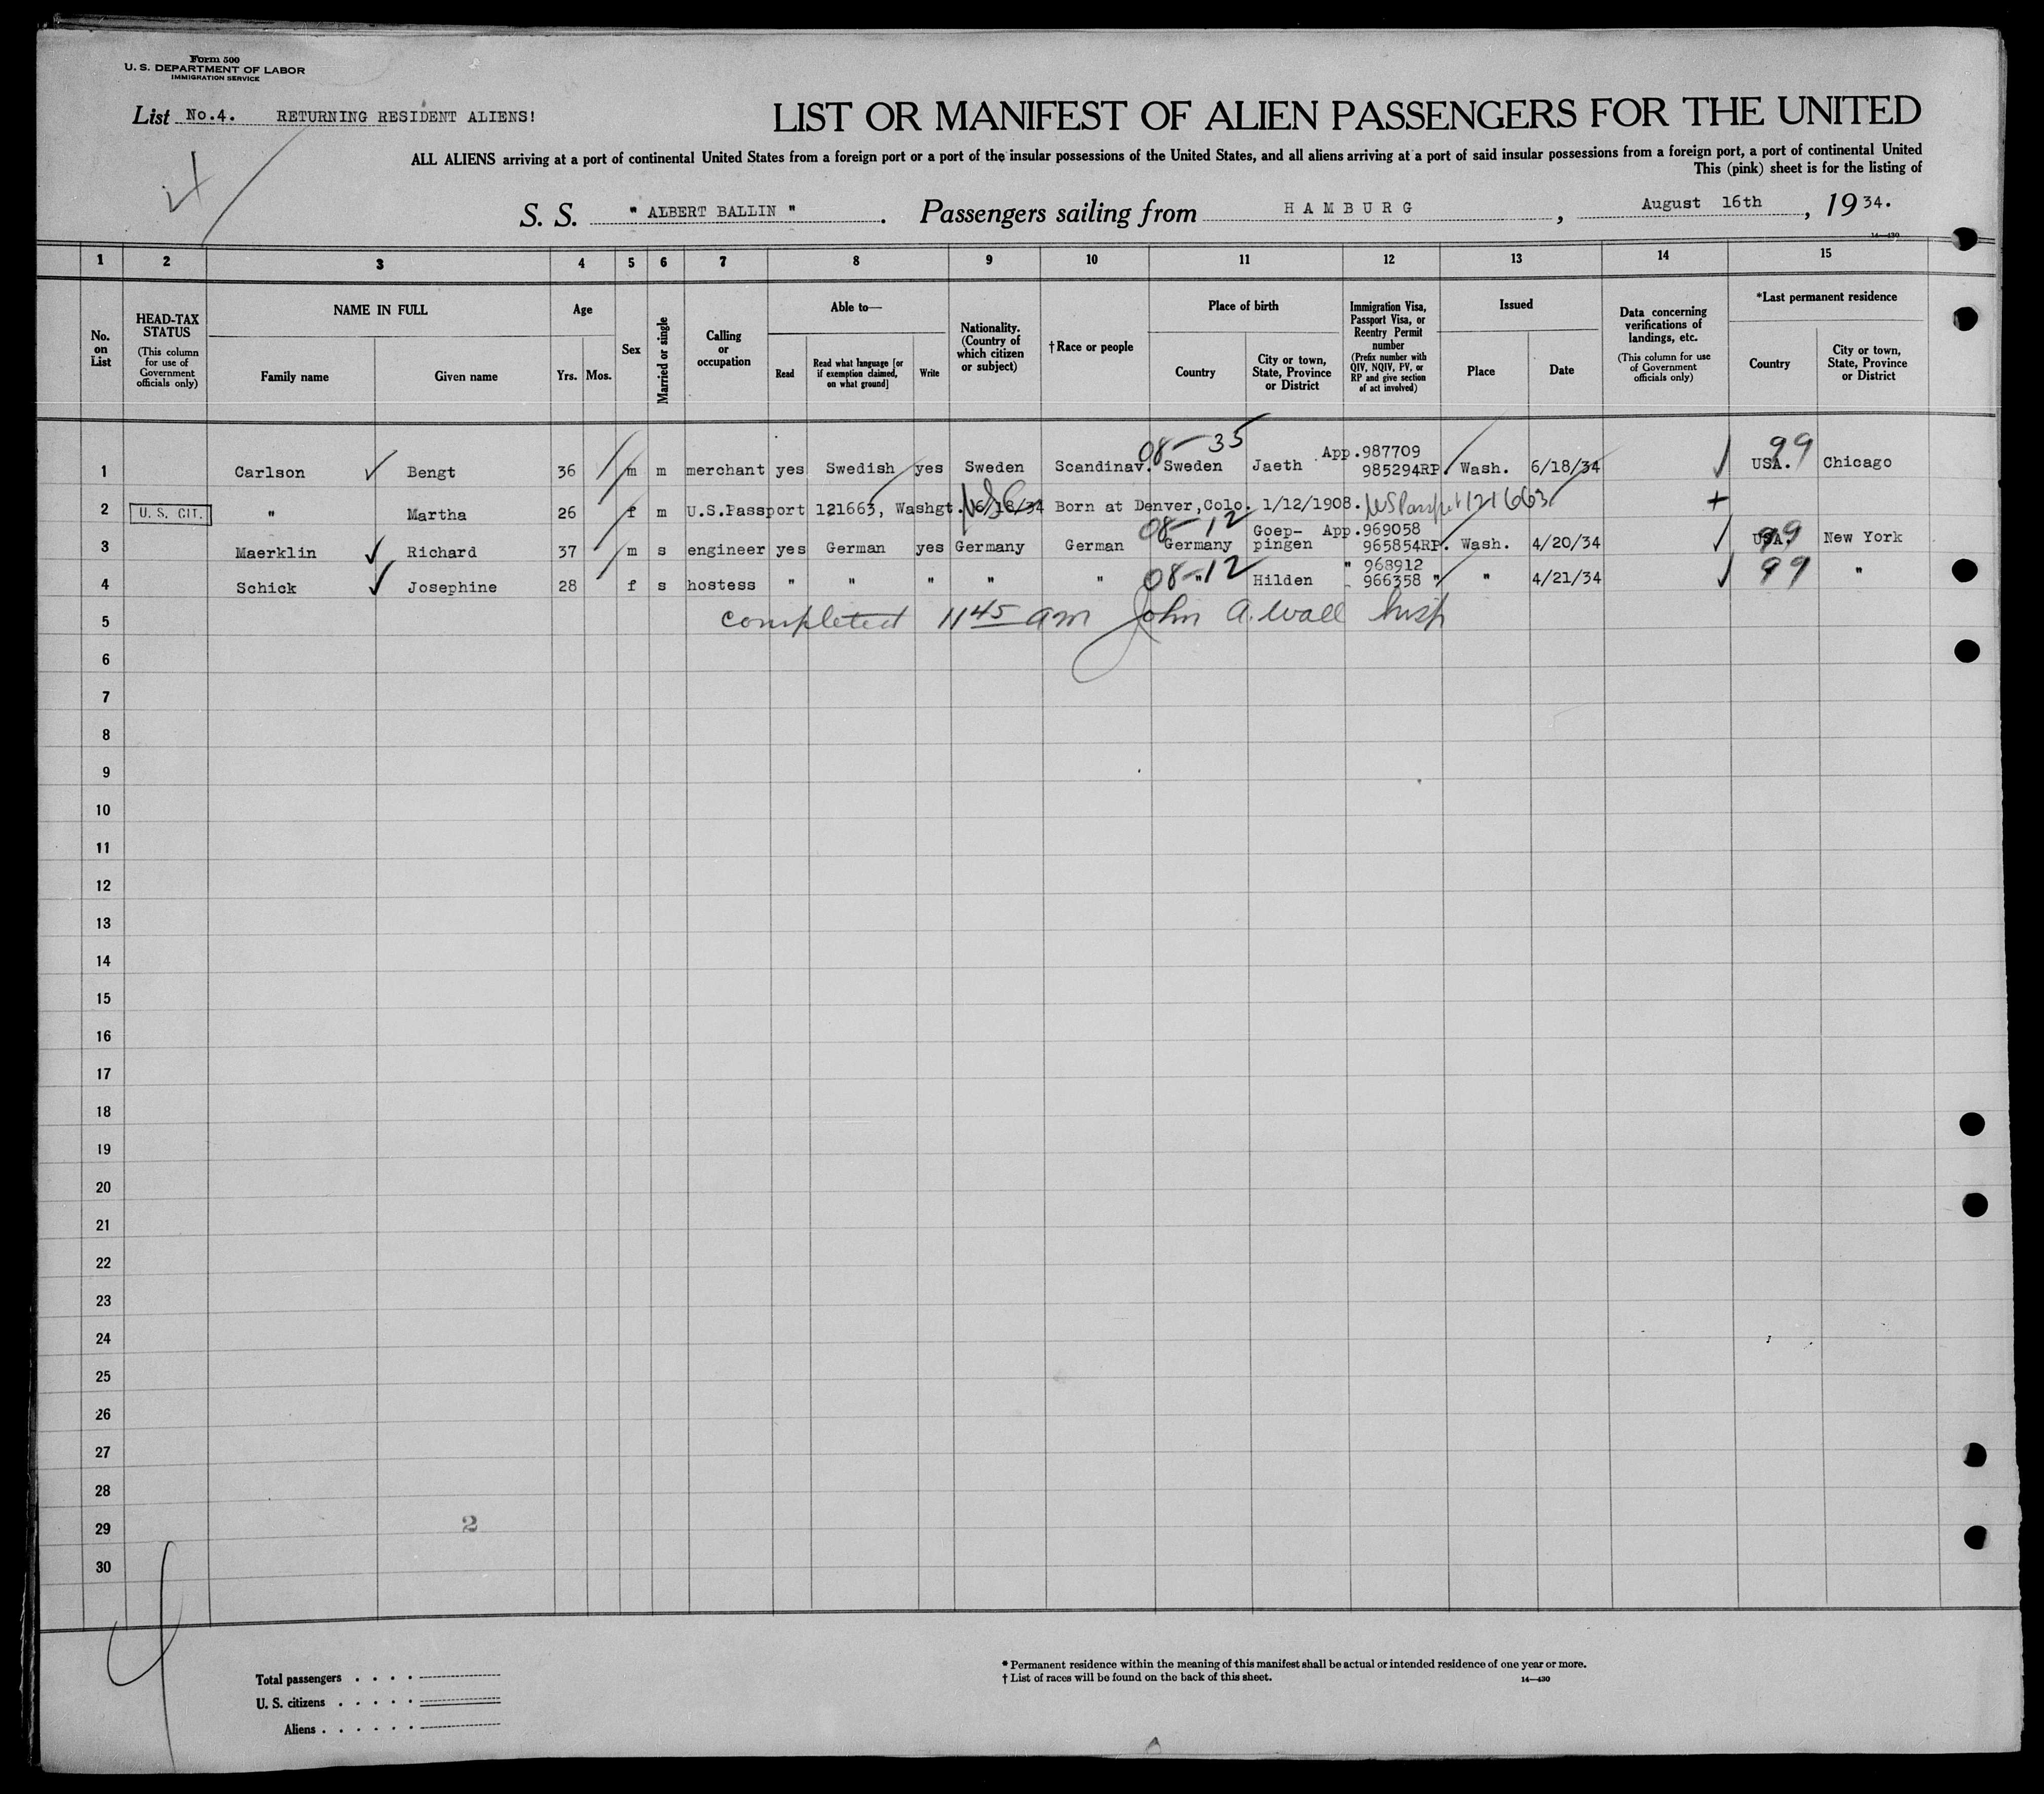 Form 500
U. S. DEPARTMENT OF LABOR
IMMIGRATION SERVICE
List No.4. RETURNING RESIDENT ALIENS!
LIST OR MANIFEST OF ALIEN PASSENGERS FOR THE UNITED
ALL ALIENS arriving at a port of continental United States from a foreign port or a port of the insular possessions of the United States, and all aliens arriving at a port of said insular possessions from a foreign port, a port of continental United
This (pink) sheet is for the listing of
S. S. " ALBERT BALLIN ". Passengers sailing from HAMBURG, August 16th, 1934.
14—430
1 2 3 4 5 6 7 8 9 10 11 12 13 14 15
No. on List
HEAD-TAX STATUS
(This column for use of Government officials only)
NAME IN FULL
Family name Given name
Age
Yrs. Mos.
Sex
Married or single
Calling or occupation
Able to—
Read
Read what language [or if exemption claimed, on what ground]
Write
Nationality. (Country of which citizen or subject)
†Race or people
Place of birth
Country
City or town, State, Province or District
Immigration Visa, Passport Visa, or Reentry Permit number
(Prefix number with QIV, NQIV, PV, or RP and give section of act involved)
Issued
Place Date
Data concerning verifications of landings, etc.
(This column for use of Government officials only)
*Last permanent residence
Country
City or town, State, Province or District
08-35 99
App.987709
1 Carlson Bengt 36 m m merchant yes Swedish yes Sweden Scandinav. Sweden Jaeth 985294RP. Wash. 6/18/34 USA. Chicago
2 U. S. CIT. " Martha 26 f m U.S.Passport 121663, Washgt. 6/18/34 Born at Denver,Colo. 1/12/1908. US Passport 121663
08-12 99
Goep- App.969058
3 Maerklin Richard 37 m s engineer yes German yes Germany German Germany pingen 965854RP. Wash. 4/20/34 USA. New York
08-12 99
" 968912
4 Schick Josephine 28 f s hostess " " " " " " Hilden 966358 " " 4/21/34 "
5 completed 11 45 am John A. Wall Insp
6
7
8
9
10
11
12
13
14
15
16
17
18
19
20
21
22
23
24
25
26
27
28
29 2
30
Total passengers . . . .
U. S. citizens . . . . .
Aliens . . . . . .
* Permanent residence within the meaning of this manifest shall be actual or intended residence of one year or more.
† List of races will be found on the back of this sheet. 14—430